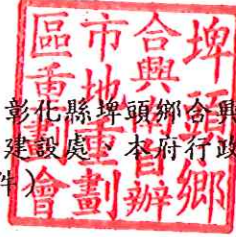 埤頭鄉
合興自辦
市地重劃
區重劃會
彰化縣埤頭鄉合興
建設處、本府行政
件)